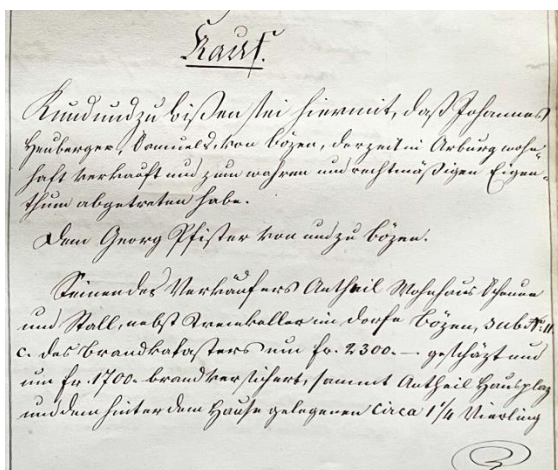 Kauf.
Kund und zu wißen sei hiermit, daß Johannes
Heuberger, Samuels, von Bözen, derzeit in Arburg wohn-
haft verkauft und zum wahren und rechtmäßigen Eigen-
thum abgetreten habe.
Dem Georg Pfister von und zu Bözen.
Seinen des Verkäufers Antheil Wohnhaus Scheune
und Stall, nebst in Dorfe Bözen, sub No: 11
c. des Brandkatasters um fr. 2300.– geschäzt und
um fr. 1700. brandversichert, sammt Antheil Hausplaz
und dem hinter dem Hause gelegenen circa 1¼ Vierling